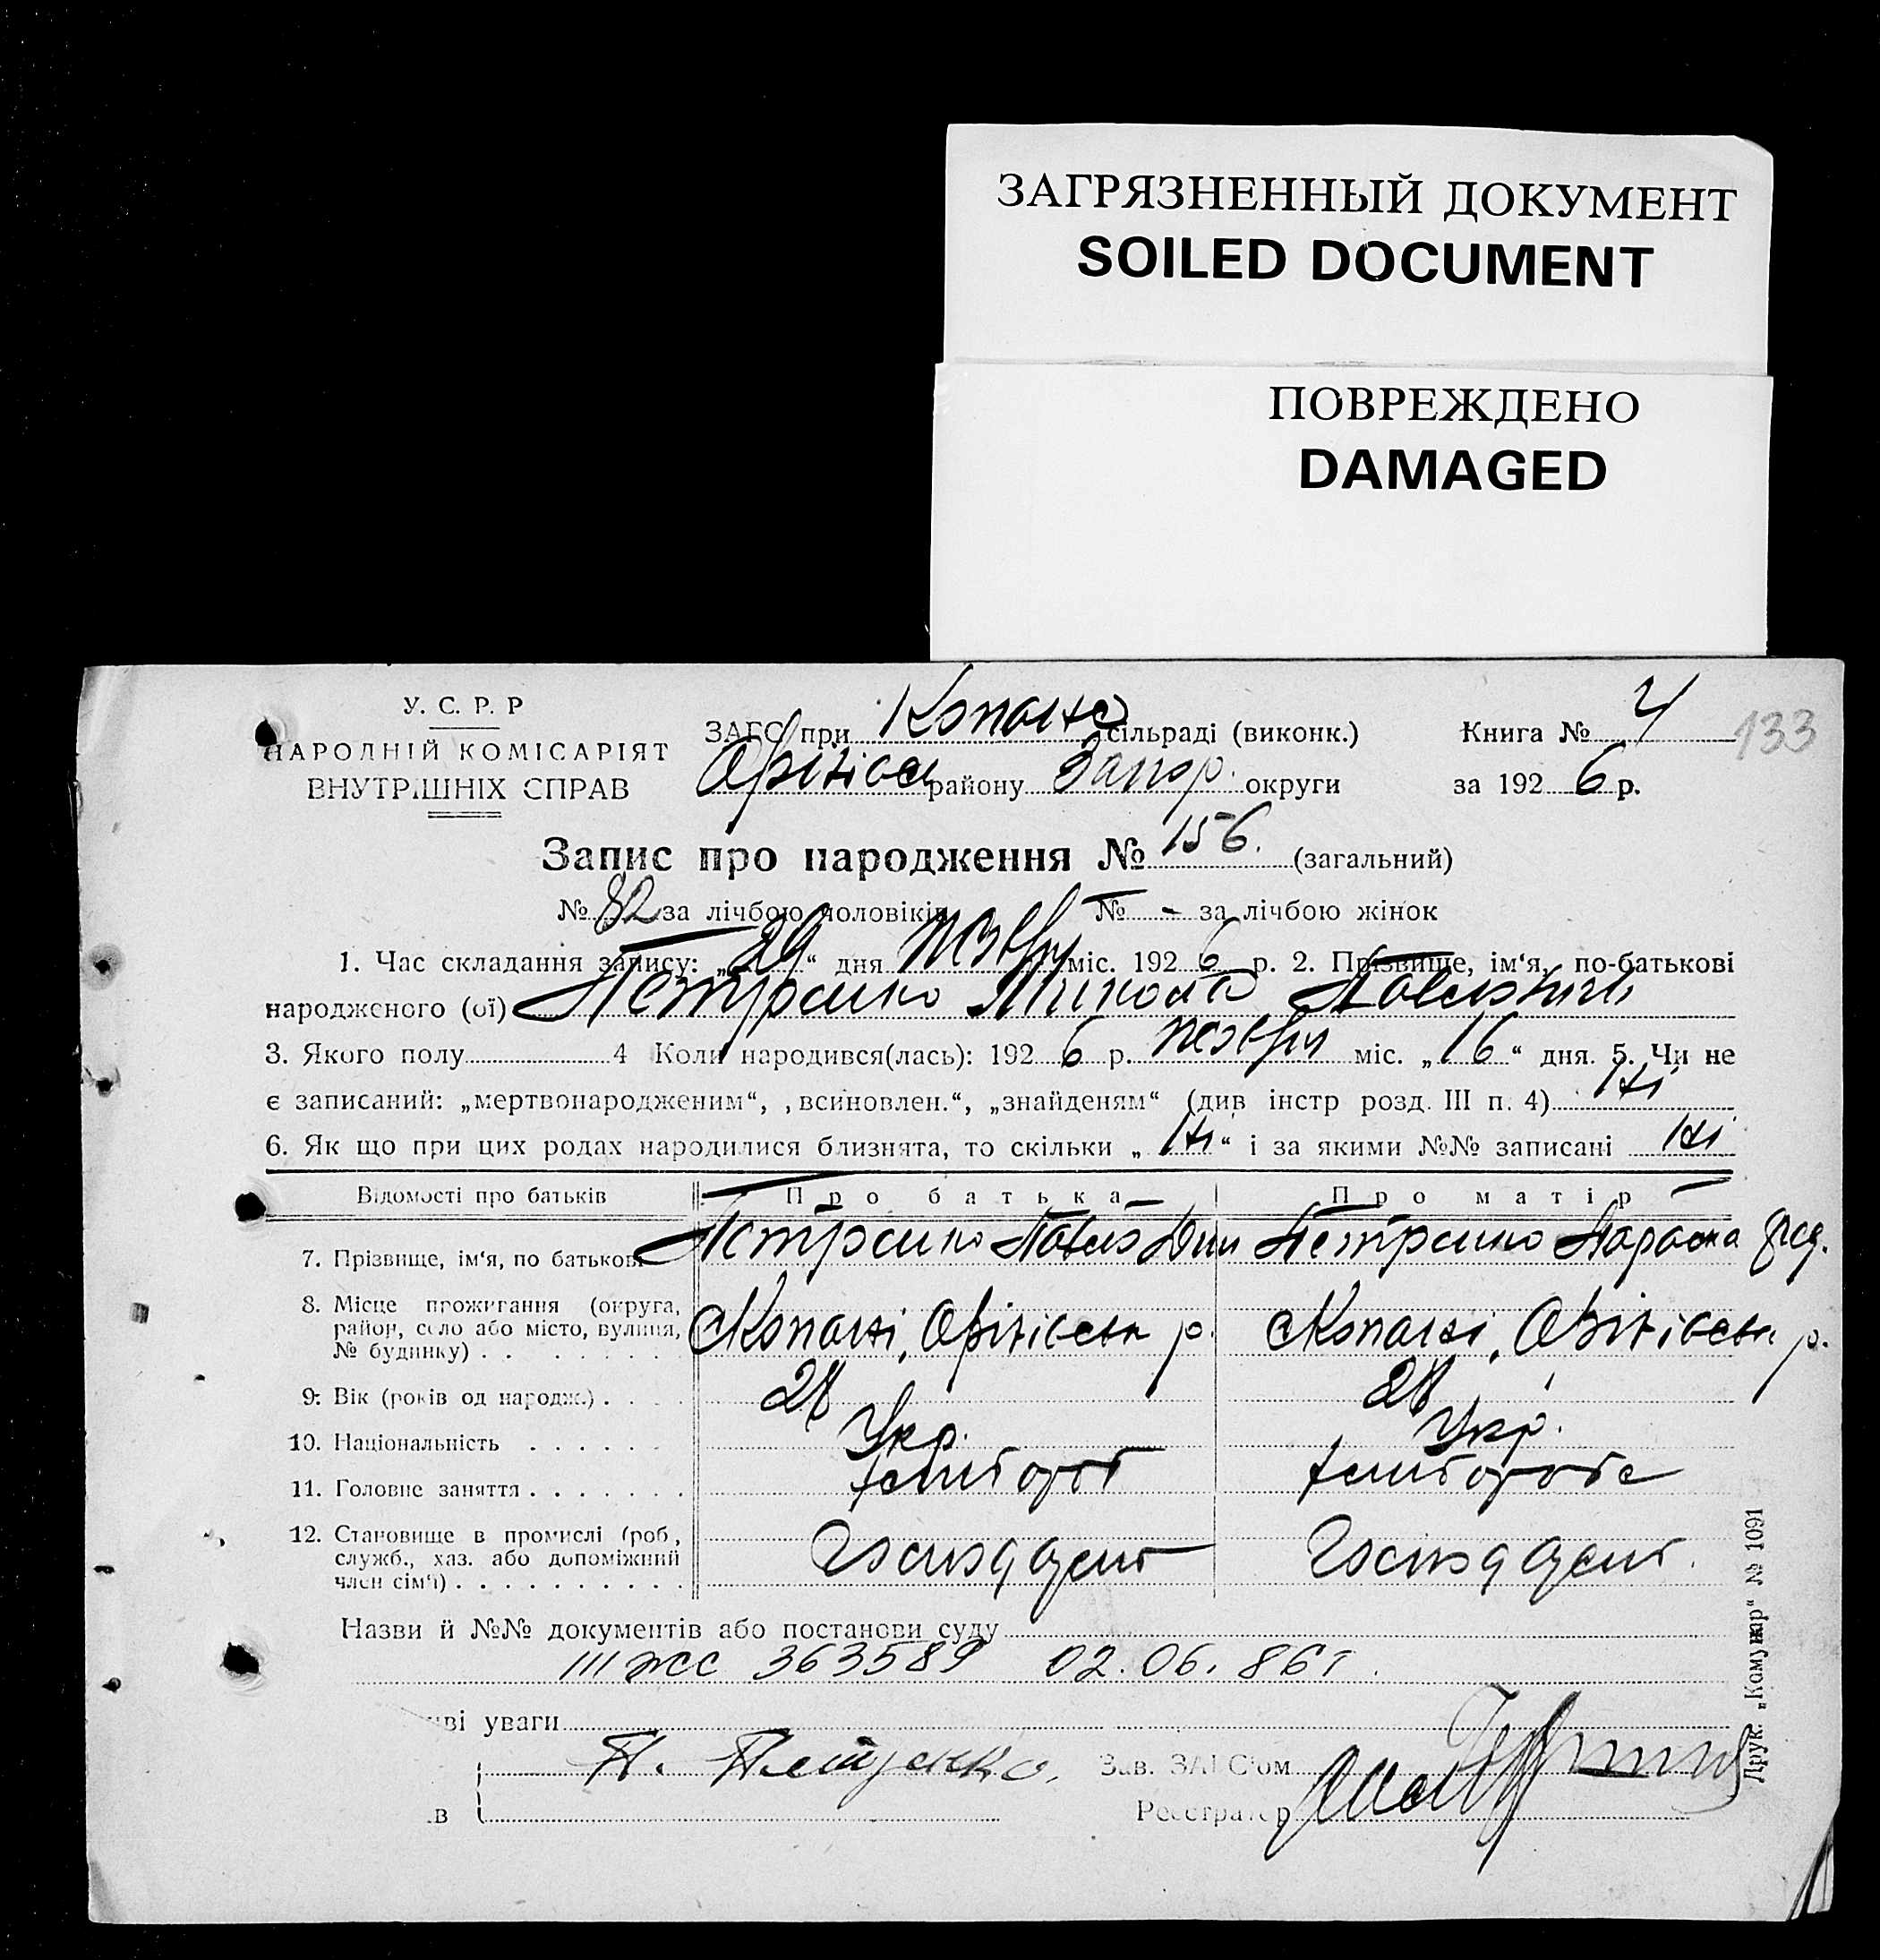 ЗАГРЯЗНЕННЫЙ ДОКУМЕНТ
SOILED DOCUMENT
ПОВРЕЖДЕНО
DAMAGED
У. С. Р. Р
НАРОДНІЙ КОМІСАРІЯТ
ВНУТРІШНІХ СПРАВ
ЗАГС при Копане сільраді (виконк.)
Книга № 4
133
Оріхівськ району Запор. округи
за 192 6 р.
Запис про народження № 156. (загальний)
№ 82 за лічбою чоловіків № - за лічбою жінок
1. Час складання запису: „ 29 “ дня жовтня міс. 192 6 р. 2. Прізвище, ім‘я, по-батькові
народженого (ої) Петренко Микола Павлович
3. Якого полу 4 Коли народився(лась): 192 6 р. жовтня міс. „ 16 “ дня. 5. Чи не
є записаний: „мертвонародженим“, „всиновлен.“, „знайденям“ (див інстр розд. III п. 4) Ні
6. Як що при цих родах народилися близнята, то скільки „ Ні “ і за якими №№ записані Ні
Відомості про батьків Про батька Про матір
7. Прізвище, ім‘я, по батькові Петренко Павло Дми Петренко Параска Фед.
8. Місце проживання (округа,
район, село або місто, вулиця,
№ будинку) с Копані, Оріхівськ р. с Копані, Оріхівськ р.
9. Вік (років од народж.) 28 28
10. Національність Укр. Укр.
11. Головне заняття хлібороб хлібороба
12. Становище в промислі (роб.,
служб., хаз. або допоміжний
член сім‘ї)
Назви й №№ документів або постанови суду
III ЖС 363589 02.06.86г.
ві уваги
П. Петренко.
Зав. ЗАГС‘ом
в
Реєстратор
Друк. „Комунар“ № 1091